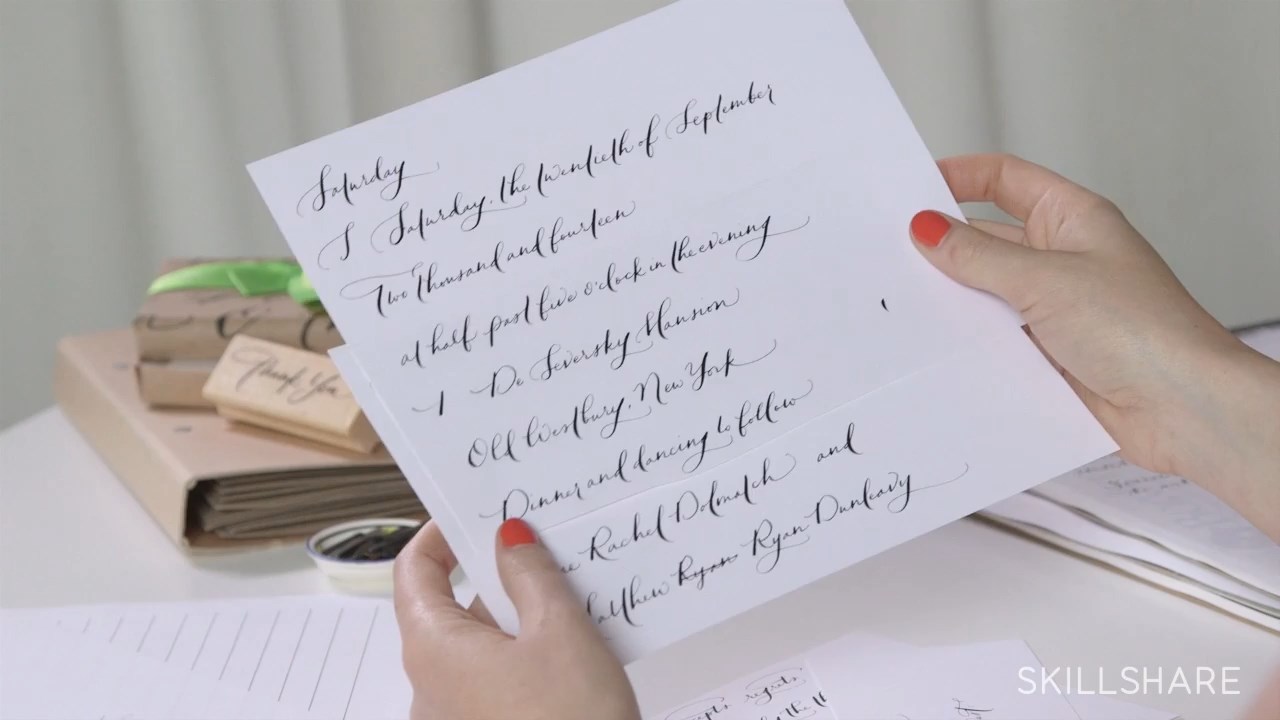 Saturday
S Saturday, the twentieth of September
Two Thousand and fourteen
at half past five o'clock in the evening
1 De Seversky Mansion
Old Westbury, New York
Dinner and dancing to follow
Rachel Dolmatch and
Matthew Ryan Ryan Dunleavy
Thank You
regrets
by the
SKILLSHARE